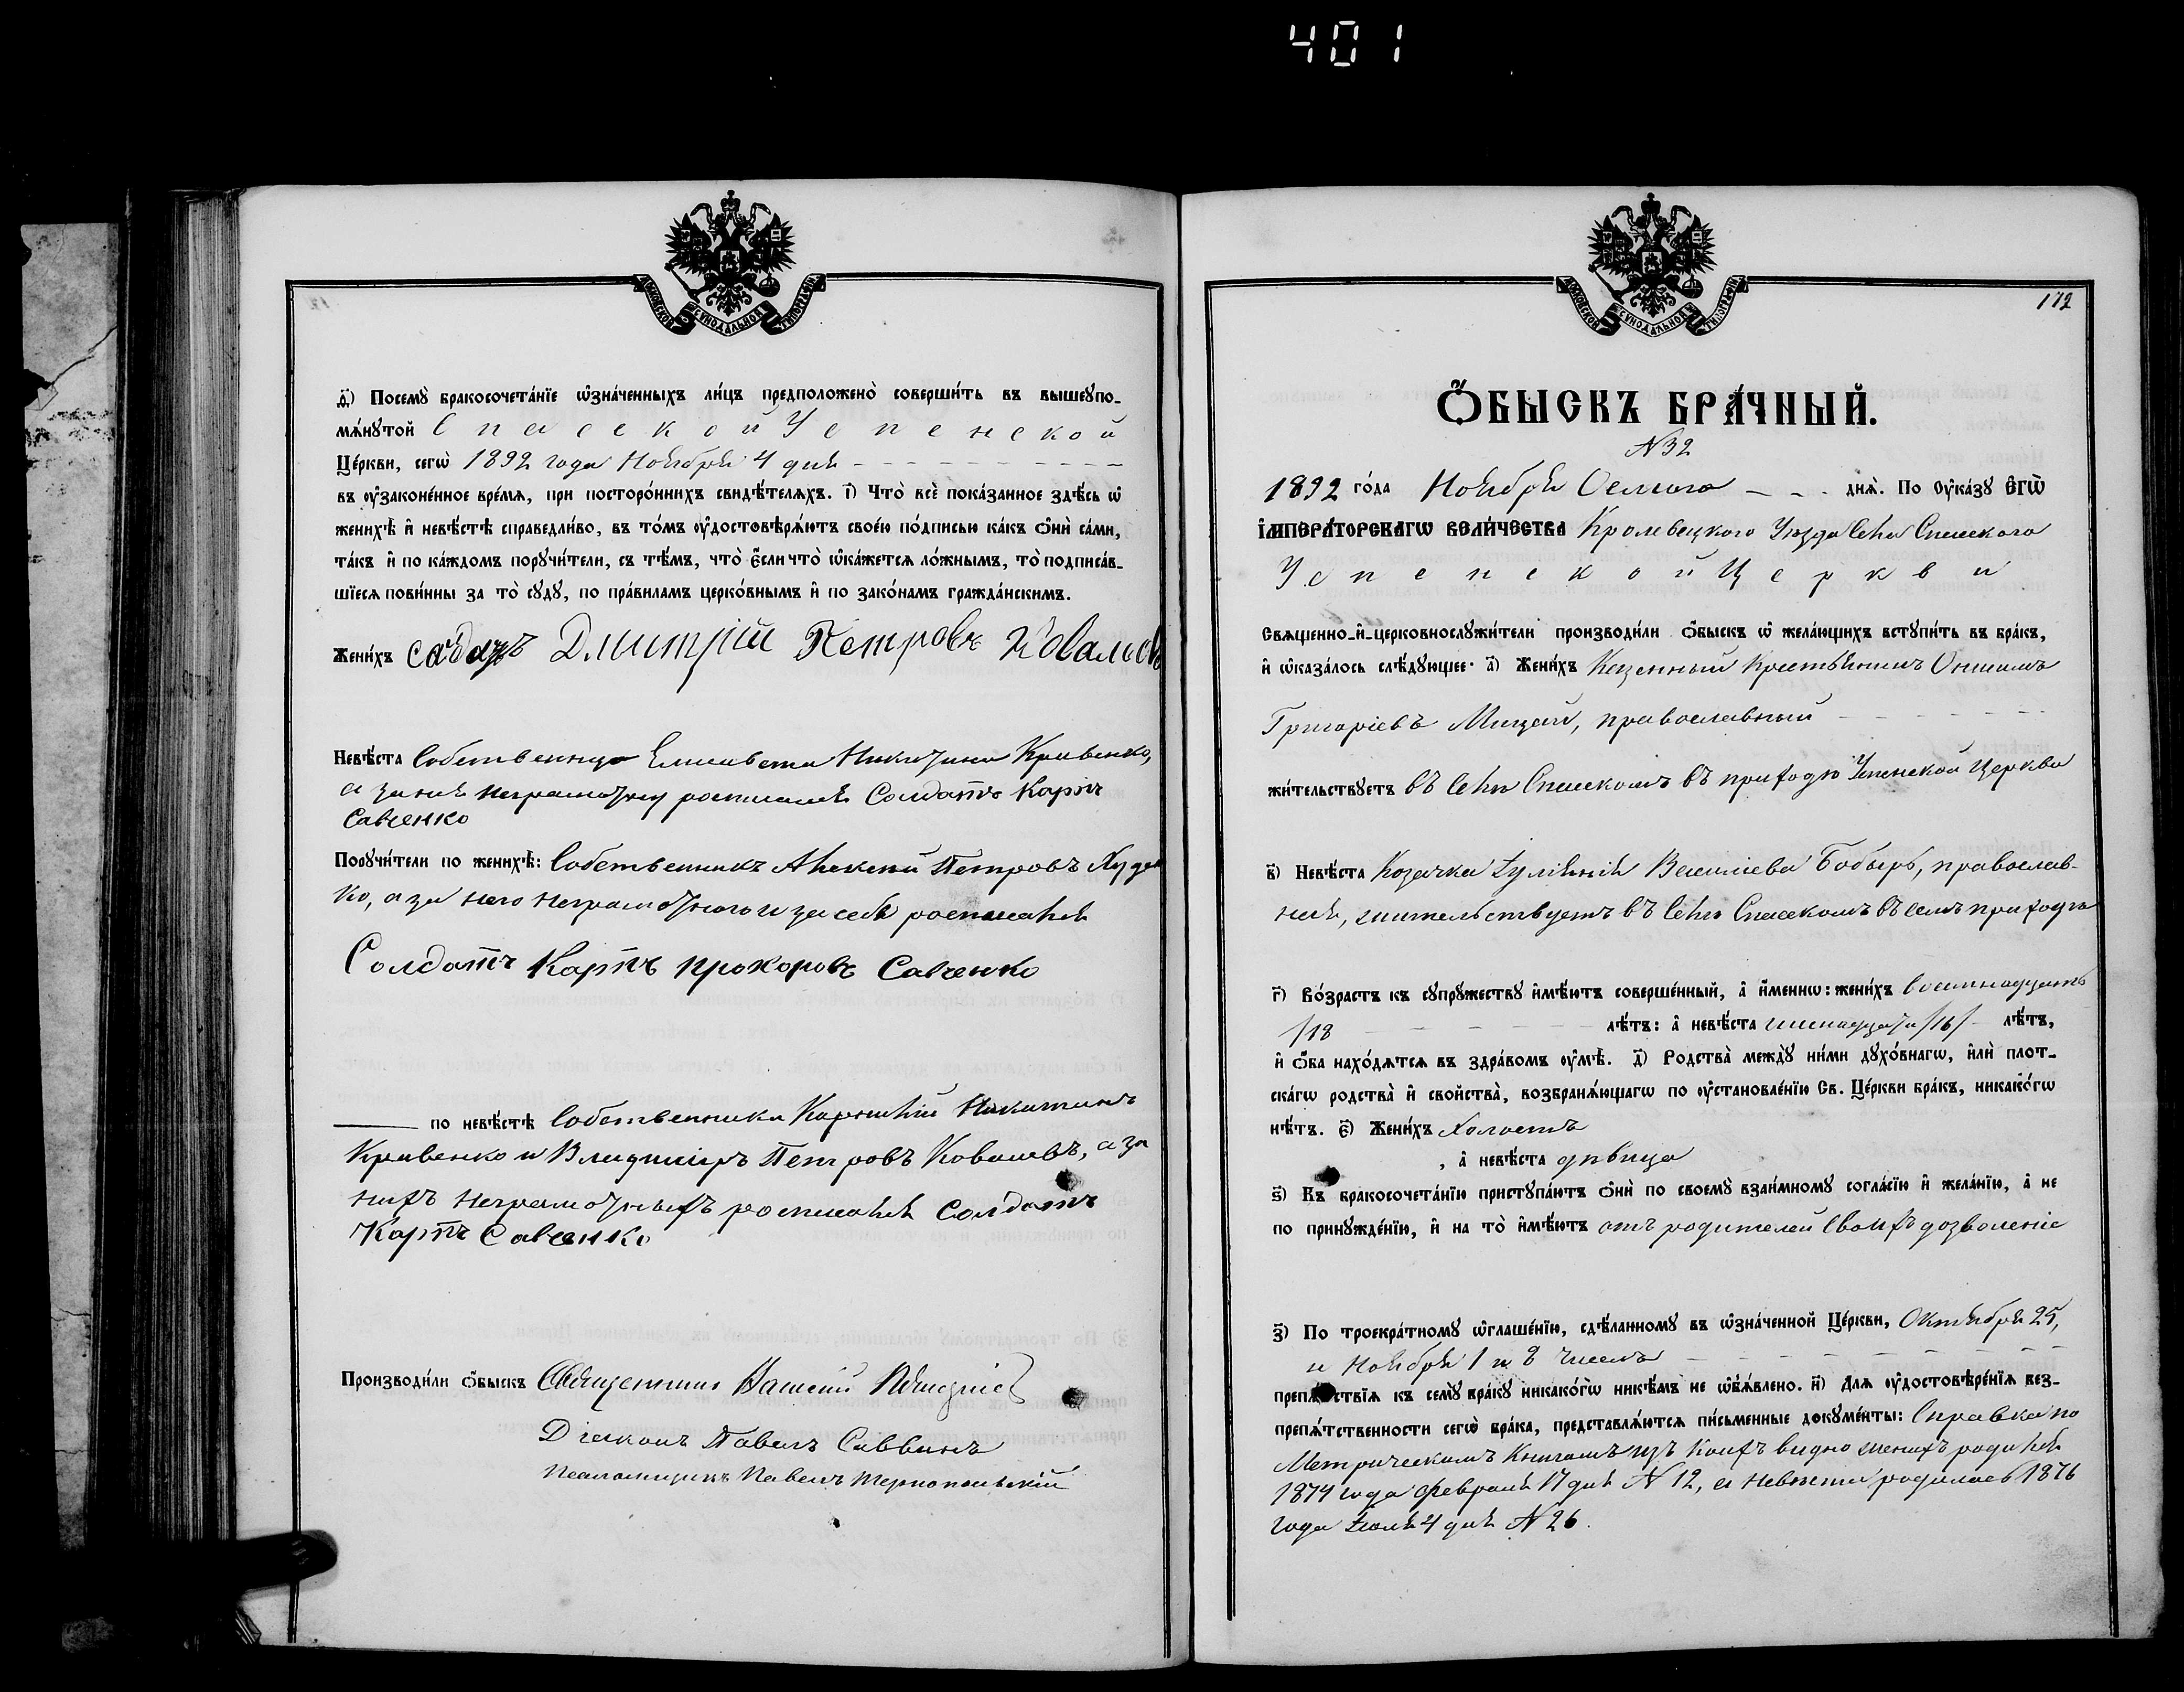 401
МОСКОВСКОЙ СѴНОДАЛЬНОЙ ТИПОГРАФІИ
д҃і) Посемꙋ̀ бракосочета́нїе ѡ҆зна́ченныхъ ли́цъ предположено̀ соверши́ть въ вышеꙋпо-
мѧ́нꙋтой Спасской Успенской
Це́ркви, сегѡ̀ 1892 года Ноября 4 дня
въ ᲂу҆законе́нное вре́мѧ, при посторо́ннихъ свидѣ́телѧхъ. і҃) Что̀ всѐ пока́занное здѣ́сь ѡ҆
женихѣ̀ и҆ невѣ́стѣ справедли́во, въ то́мъ ᲂу҆достовѣрѧ́ютъ свое́ю по́дписью ка́къ ѻ҆нѝ са́ми,
та́къ и҆ по ка́ждомъ порꙋчи́тели, съ тѣ́мъ, что̀ є҆́сли что̀ ѡ҆ка́жетсѧ ло́жнымъ, то̀ подписа́в-
шїесѧ пови́нны за то̀ сꙋдꙋ̀, по пра́виламъ церко́внымъ и҆ по зако́намъ гражда́нскимъ.
Жени́хъ Дмитрій Петровъ Ковалевъ
Невѣ́ста Собственница Елисавета Никитина Кривенко,
а за нея неграмотну росписался Солдатъ Карпъ
Савченко
Порꙋчи́тели по женихѣ̀: Собственникъ Алексѣй Петровъ
ко, а за него неграмотного и за себя росписался
Солдатъ Карпъ Прохоровъ Савченко
по невѣ́стѣ Собственники Корнилій Никитинъ
Кривенко и Владиміръ Петровъ Ковалевъ, а за
нихъ неграмотныхъ росписался Солдатъ
Карпъ Савченко
Производи́ли ѻ҆́быскъ Священникъ Василій
Діаконъ Павелъ Саввинъ
Псаломщикъ Павелъ Тернопольскій
МОСКОВСКОЙ СѴНОДАЛЬНОЙ ТИПОГРАФІИ
172
Ѻ҆́БЫСКЪ БРА́ЧНЫЙ.
N 32
1892 го́да Ноября Осмого днѧ̀. По ᲂу҆ка́зꙋ Є҆ГѠ̀
І҆МПЕРА́ТОРСКАГѠ ВЕЛИ́ЧЕСТВА Кролевецкого Уѣзда Села Спасского
Успенской Церкви
Свѧще́нно-и҆-церковнослꙋжи́тели производи́ли ѻ҆́быскъ ѡ҆ жела́ющихъ встꙋпи́ть въ бра́къ,
и҆ ѡ҆каза́лось слѣ́дꙋющее: а҃) Жени́хъ Казенный Крестьянинъ Онисимъ
Григоріевъ Мицай, православный
жи́тельствꙋетъ въ Селѣ Спасскомъ въ приходѣ Успенской Церкви
в҃) Невѣ́ста Козачка Іуліянія Василіева Бобырь, православ-
ная, жительствуетъ въ Селѣ Спасскомъ въ семъ приходѣ
г҃) Во́зрастъ къ сꙋпрꙋ́жествꙋ и҆мѣ́ютъ соверше́нный, а҆ и҆́меннѡ: жени́хъ восемнадцать
/18 лѣ́тъ: а҆ невѣ́ста шестнадцати /16/ лѣ́тъ,
и҆ ѻ҆́ба нахо́дѧтсѧ въ здра́вомъ ᲂу҆мѣ̀. д҃) Родства̀ междꙋ̀ ни́ми дꙋхо́внагѡ, и҆лѝ плот-
ска́гѡ родства̀ и҆ сво́йства̀, возбранѧ́ющагѡ по ᲂу҆становле́нїю Св. Це́ркви бра́къ, никако́гѡ
нѣ́тъ. є҃) Жени́хъ Холостъ
, а҆ невѣ́ста дѣвица
ѕ҃) Къ бракосочета́нїю пристꙋпа́ютъ ѻ҆нѝ по своемꙋ̀ взаи́мномꙋ согла́сїю и҆ жела́нїю, а҆ не
по принꙋжде́нїю, и҆ на то̀ и҆мѣ́ютъ отъ родителей своихъ дозволеніе
з҃) По троекра́тномꙋ ѡ҆глаше́нїю, сдѣ́ланномꙋ въ ѡ҆зна́ченной Це́ркви, Октября 25,
и Ноября 1 и 8 числъ
препѧ́тствїѧ къ семꙋ̀ бра́кꙋ никако́гѡ никѣ́мъ не ѡ҆б̾ѧ́влено. и҃) Длѧ ᲂу҆достовѣре́нїѧ без-
препѧ́тственности сегѡ̀ бра́ка, представлѧ́ютсѧ пи́сьменные докꙋме́нты: Справка по
Метрическимъ Книгамъ изъ коихъ видно женихъ родился
1874 года Февраля 17 дня N 12, а Невѣста родилась 1876
года Іюля 4 дня N 26.